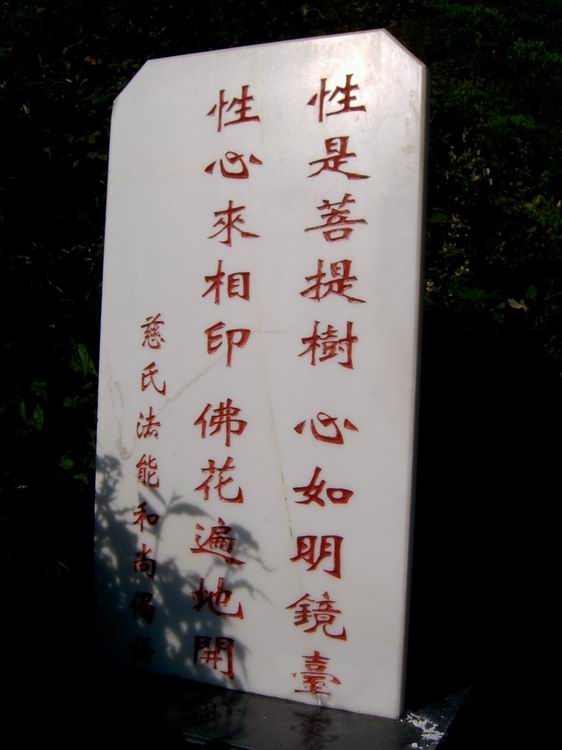 性是菩提樹 心如明鏡臺
性心來相印 佛花遍地開
慈氏法能和尚偈語